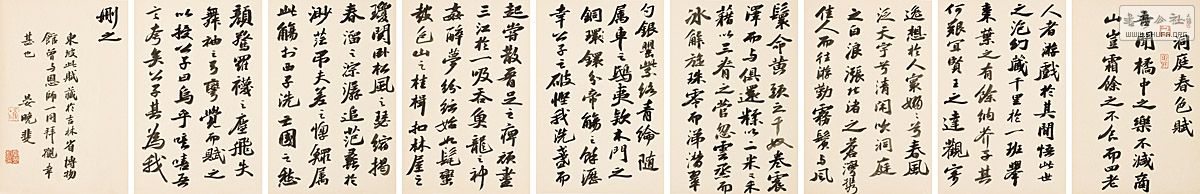 洞庭春色賦
吾聞橘中之樂不減商
山豈霜餘之不食而四老
人者游戲於其間悟此世
之泡幻藏千里於一班舉
棗葉之有餘納芥子其
何艱宜賢王之達觀寄
逸想於人寰嫋嫋兮春風
泛天宇兮清閑吹洞庭
之白浪漲北渚之蒼灣攜
佳人而往游勤霧鬢與風
鬟命黃頭之千奴卷震
澤而與俱還糅以二米之禾
藉以三脊之菅忽雲蒸而
冰解旋珠零而涕潸翠
勺銀罌紫絡青綸隨
屬車之鴟夷款木門之
銅環鐶分帝觴之餘瀝
幸公子之破慳我洗盞而
起嘗散腰足之痺頑盡
三江於一吸吞魚龍之神
姦醉夢紛紜始如髦蠻
鼓包山之桂楫扣林屋之
瓊關臥松風之瑟縮揭
春溜之淙潺追范蠡於
渺茫吊夫差之惸鰥屬
此觴於西子洗亡國之愁
顏驚羅襪之塵飛失
舞袖之弓彎覺而賦之
以授公子曰烏乎噫嘻吾
言夸矣公子其為我
刪之
東坡此賦藏於吉林省博物
館曾與恩師一同拜觀幸
甚也 晏曉斐